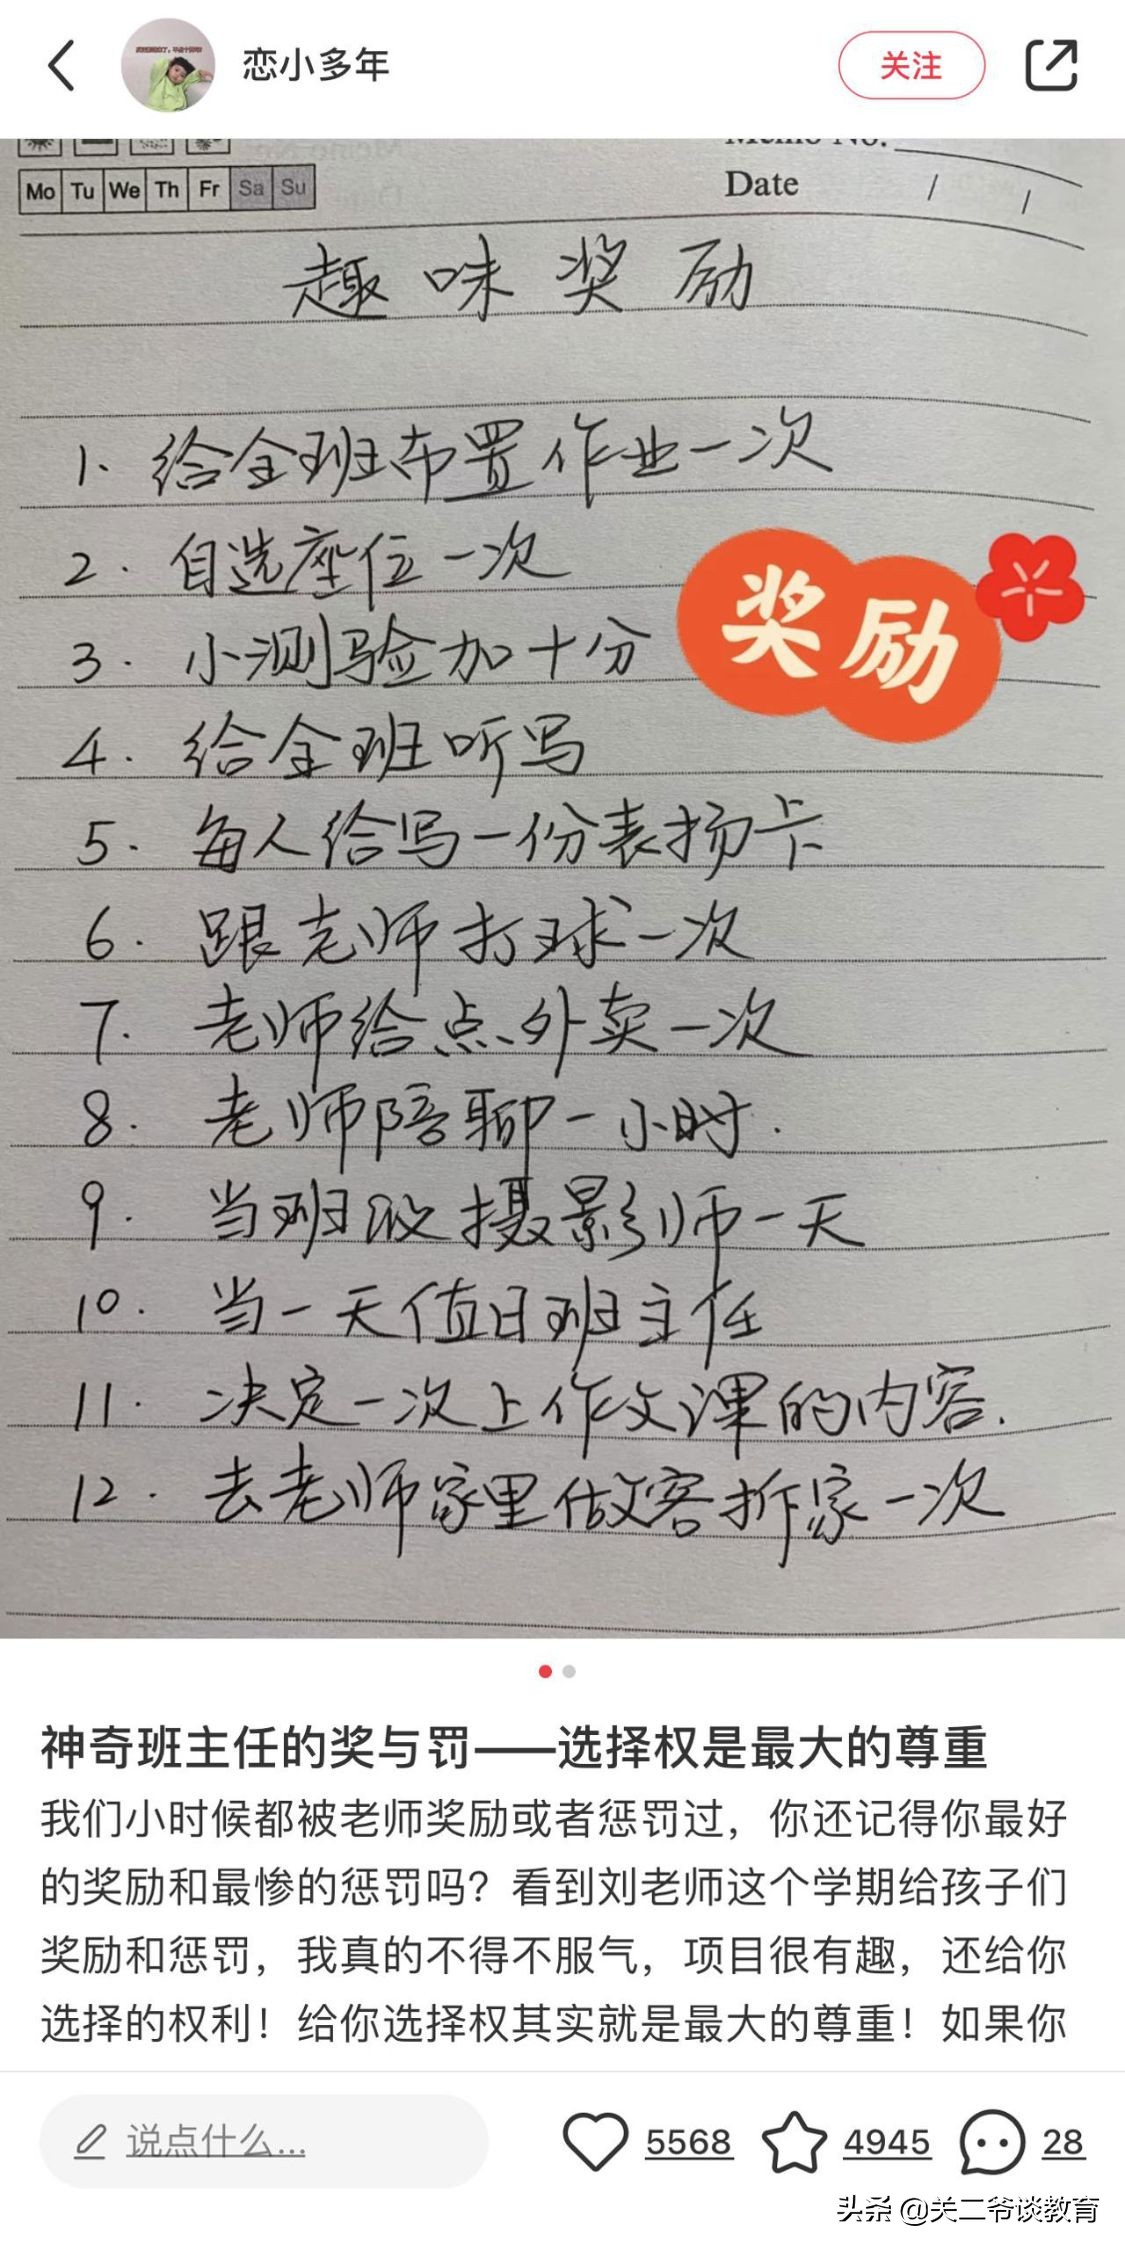 恋小多年
关注
Mo Tu We Th Fr Sa Su
Memo No.
Date / /
趣味奖励
1. 给全班布置作业一次
2. 自选座位一次
3. 小测验加十分
奖励
4. 给全班听写
5. 每人给写一份表扬卡
6. 跟老师打球一次
7. 老师给点外卖一次
8. 老师陪聊一小时.
9. 当班级摄影师一天
10. 当一天值日班主任
11. 决定一次上作文课的内容.
12. 去老师家里做客拆家一次
神奇班主任的奖与罚——选择权是最大的尊重
我们小时候都被老师奖励或者惩罚过，你还记得你最好
的奖励和最惨的惩罚吗？看到刘老师这个学期给孩子们
奖励和惩罚，我真的不得不服气，项目很有趣，还给你
选择的权利！给你选择权其实就是最大的尊重！如果你
说点什么...
5568
4945
28
头条 @关二爷谈教育